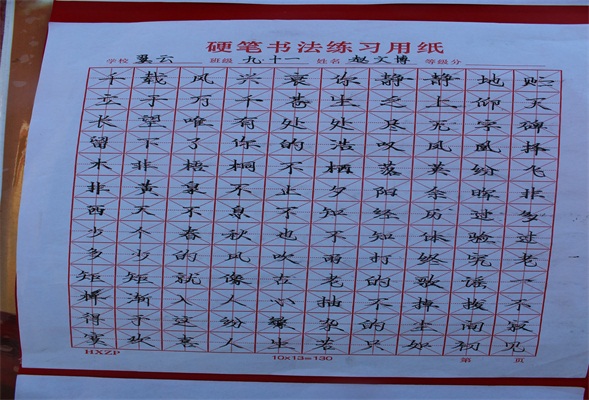 硬笔书法练习用纸
学校 翼云 班级 九.十一 姓名 赵文博 等级分
千载风 你静静地贮
立于万千 生之上仰天
长望唯有处处尽无字碑
留下了你的浩叹凤凰择
木非梧桐不栖落英纷飞
非黄 不止夕阳余晖非
西天不息不知经历过多
少个春秋也不知体验过
多少的风吹雨打终究老
矩矩就像古老的歌谣一
样渐入人心抽不掉拔不
得于这纷繁杂的尘间寂
寞欢喜人生若只如初见
HXZP 10x13=130 第 页